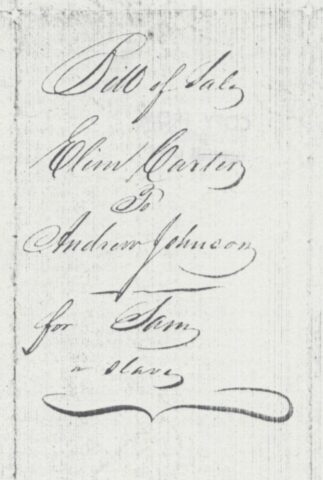 Bill of Sale
Elim Carter
To
Andrew Johnson
for Sam
a slave